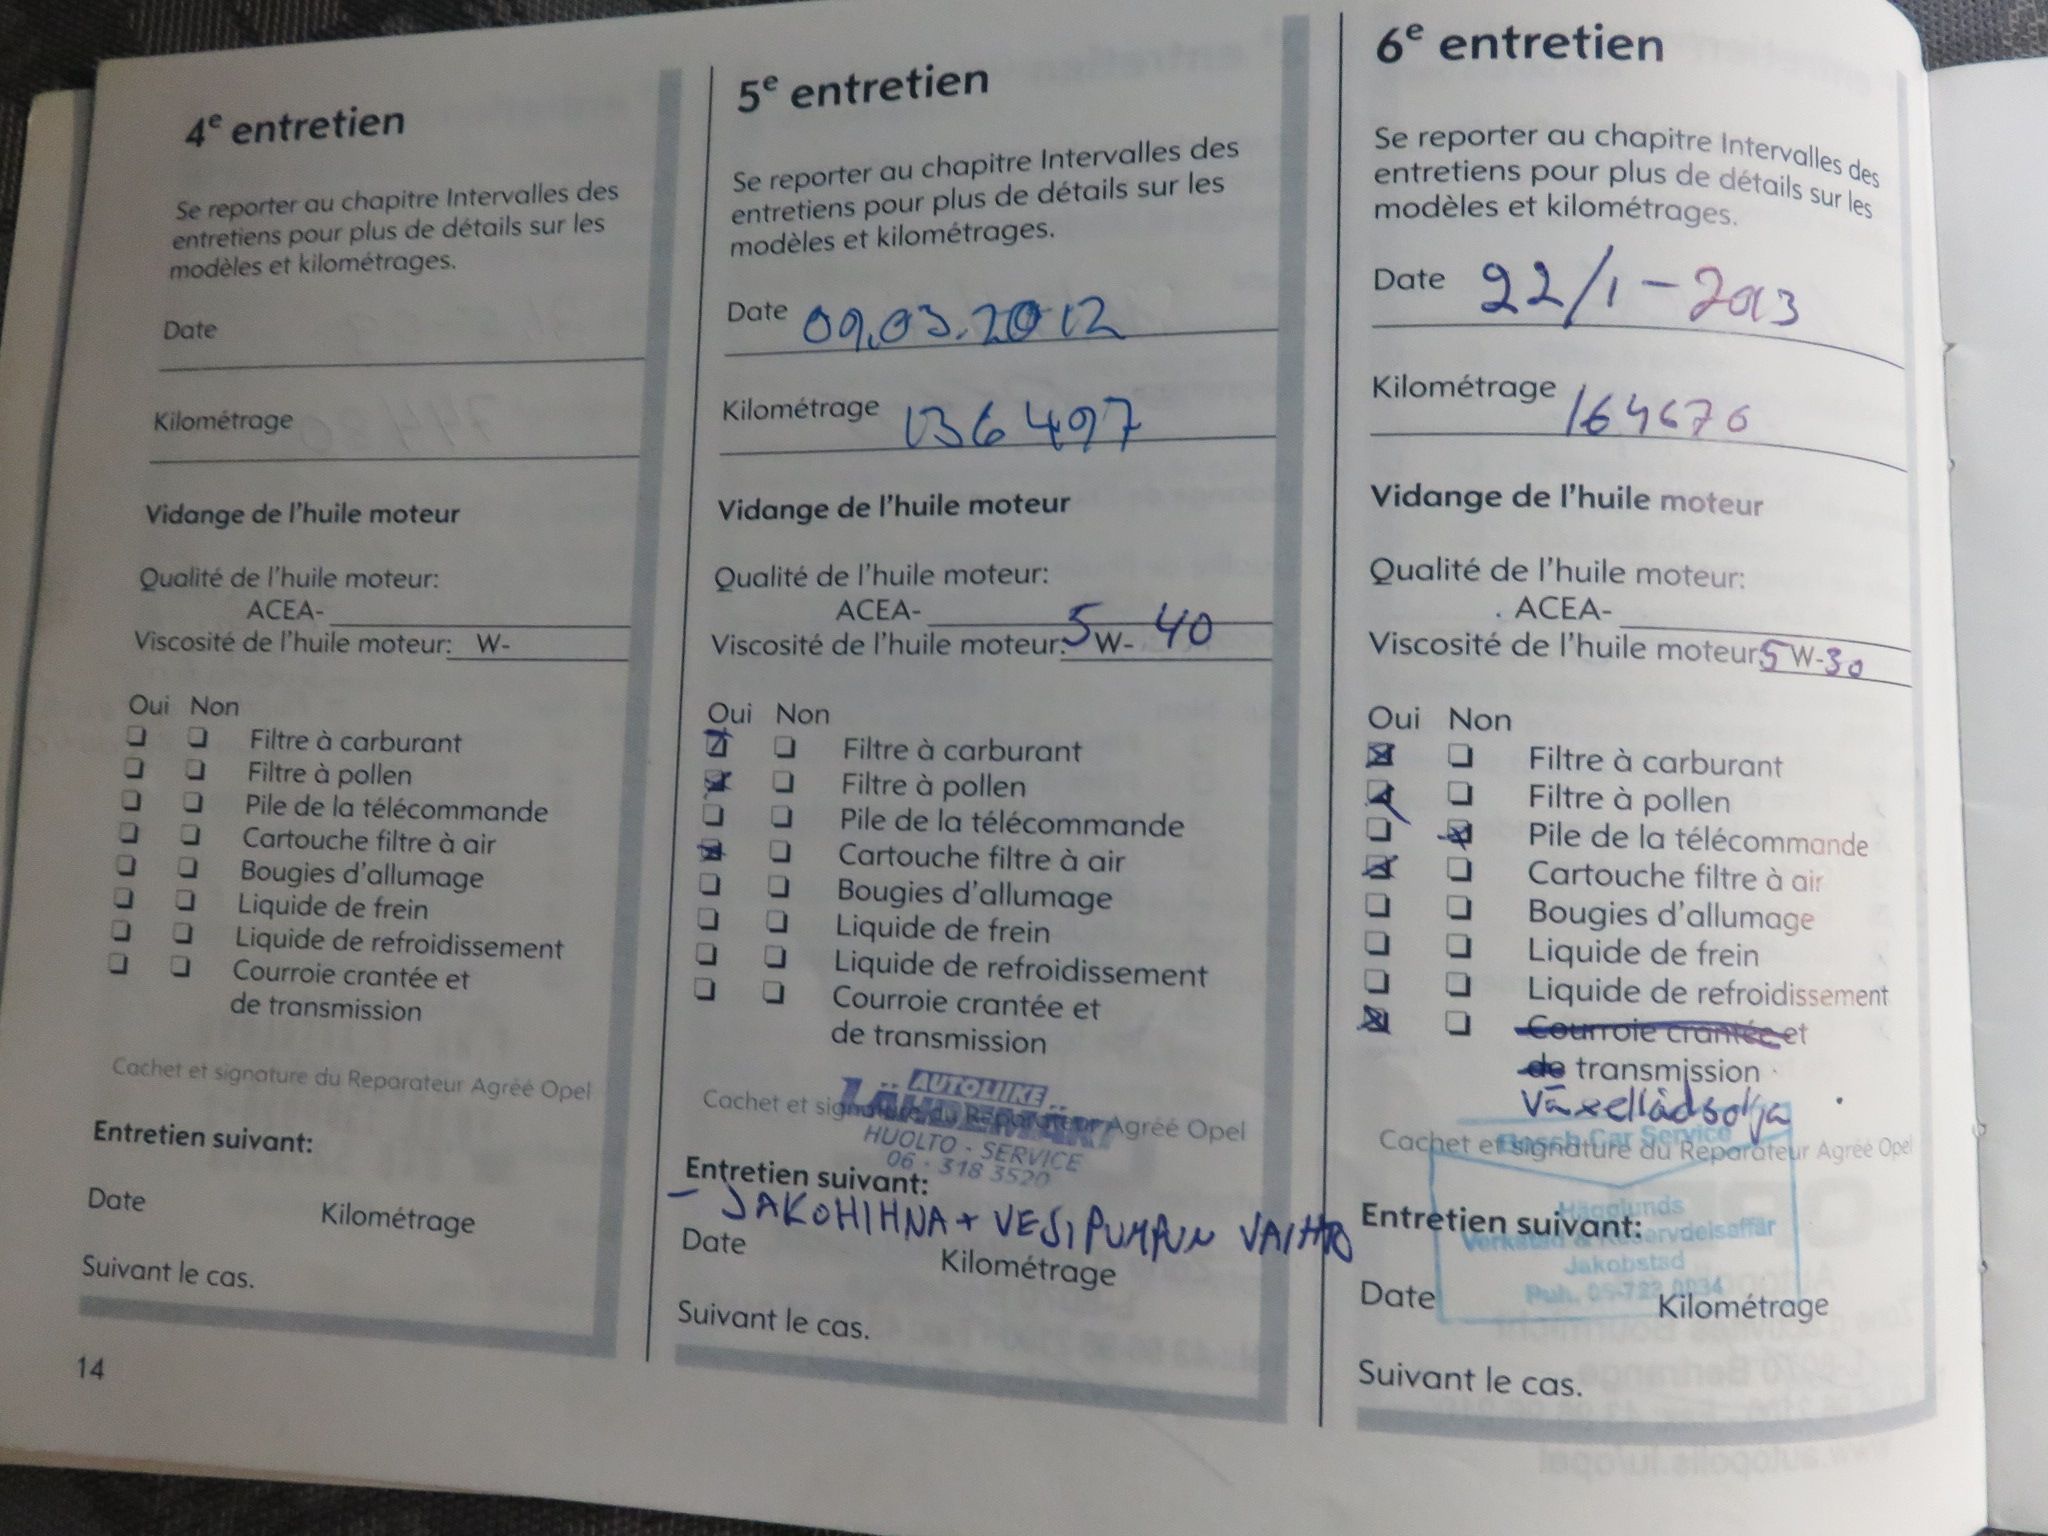 4e entretien
Se reporter au chapitre Intervalles des
entretiens pour plus de détails sur les
modèles et kilométrages.
Date
Kilométrage
Vidange de l'huile moteur
Qualité de l'huile moteur:
ACEA-
Viscosité de l'huile moteur: W-
Oui Non
Filtre à carburant
Filtre à pollen
Pile de la télécommande
Cartouche filtre à air
Bougies d'allumage
Liquide de frein
Liquide de refroidissement
Courroie crantée et
de transmission
Cachet et signature du Reparateur Agréé Opel
Entretien suivant:
Date Kilométrage
Suivant le cas.
14
5e entretien
Se reporter au chapitre Intervalles des
entretiens pour plus de détails sur les
modèles et kilométrages.
Date 09.03.2012
Kilométrage 136497
Vidange de l'huile moteur
Qualité de l'huile moteur:
ACEA-
Viscosité de l'huile moteur: 5 W- 40
Oui Non
Filtre à carburant
Filtre à pollen
Pile de la télécommande
Cartouche filtre à air
Bougies d'allumage
Liquide de frein
Liquide de refroidissement
Courroie crantée et
de transmission
AUTOLIIKE
Cachet et signature du Reparateur Agréé Opel
HUOLTO - SERVICE
06 - 318 3520
Entretien suivant:
- JAKOHIHNA + VESIPUMPUN VAIHTO
Date Kilométrage
Suivant le cas.
6e entretien
Se reporter au chapitre Intervalles des
entretiens pour plus de détails sur les
modèles et kilométrages.
Date 22/1-2013
Kilométrage 164676
Vidange de l'huile moteur
Qualité de l'huile moteur:
ACEA-
Viscosité de l'huile moteur: 5 W-30
Oui Non
Filtre à carburant
Filtre à pollen
Pile de la télécommande
Cartouche filtre à air
Bougies d'allumage
Liquide de frein
Liquide de refroidissement
Courroie crantée et
de transmission
Växellådsolja
Bosch Car Service
Cachet et signature du Reparateur Agréé Opel
Hägglunds
Entretien suivant:
Verkstad & Reservdelsaffär
Jakobstad
Date Kilométrage
Suivant le cas.